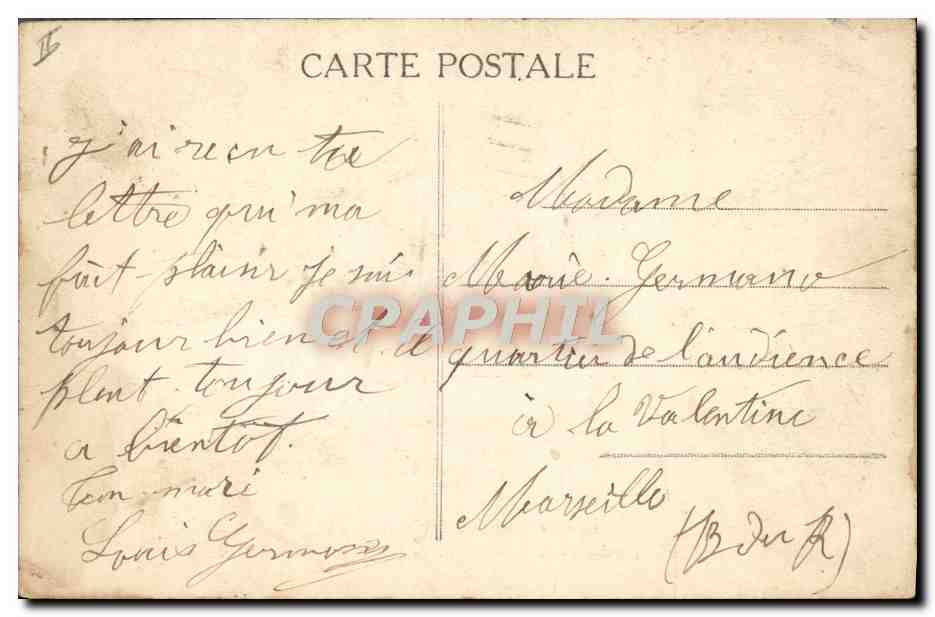 CARTE POSTALE
j'ai recu ta
lettre qui ma
fait plaisir je sui
toujour bien et il
pleut toujour
a bientot.
ton mari
Louis Germano
Madame
Marie Germano
quartier de l'audience
à la Valentine
Marseille
(B du R)
CPAPHIL